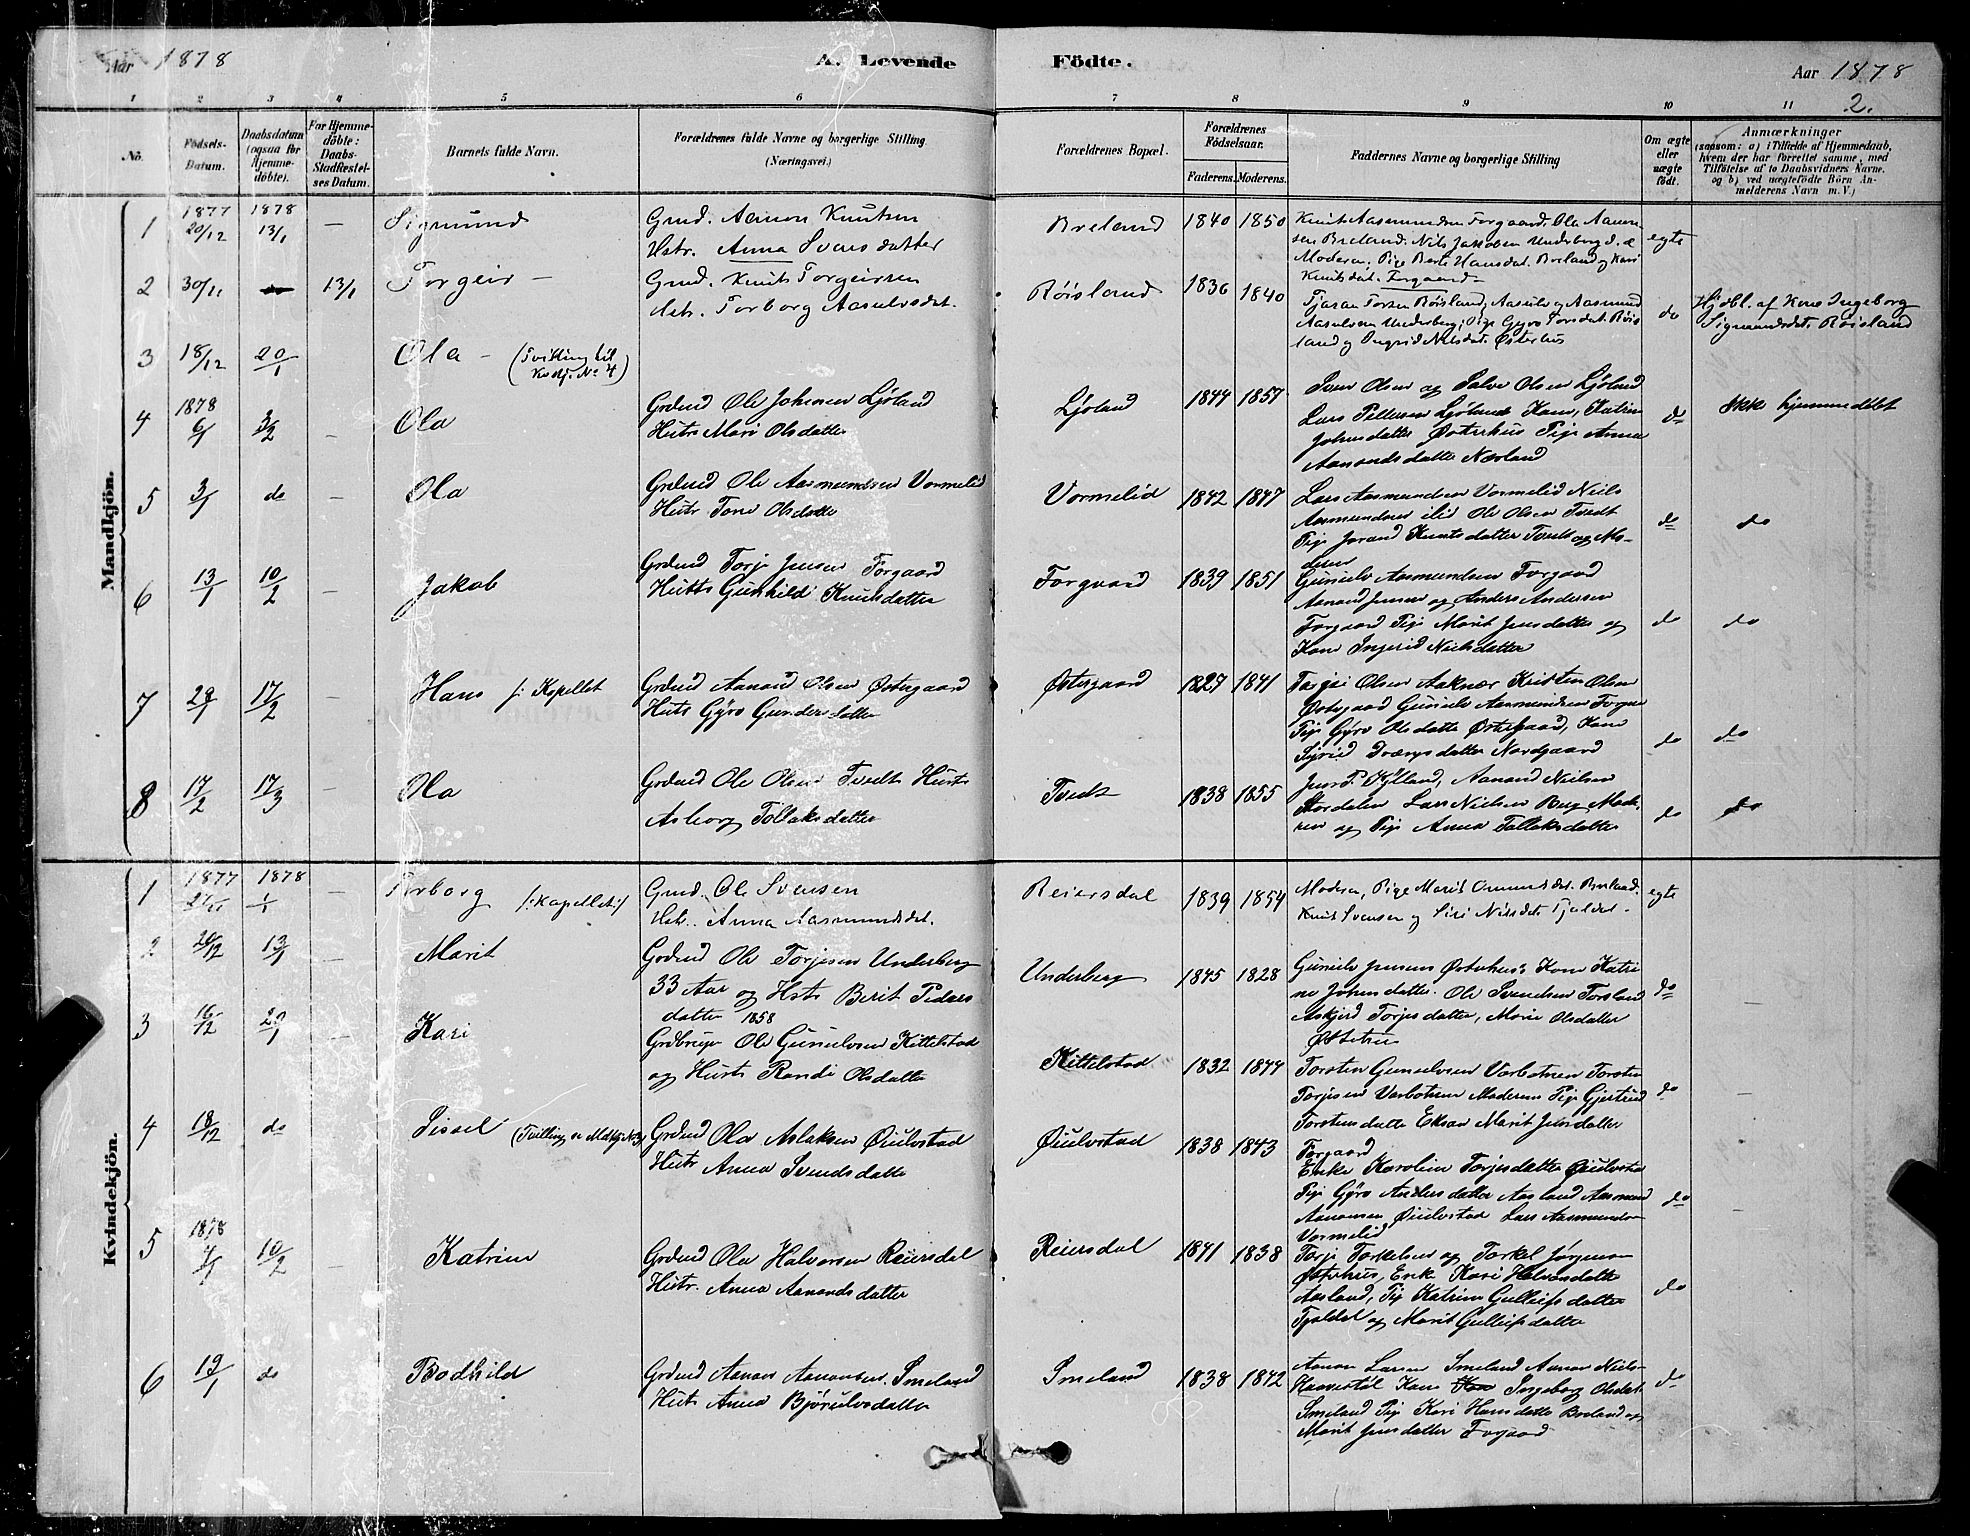 Aar 1878
A. Levende Födte.
Aar 1878
2.
1 2 3 4 5 6 7 8 9 10 11
No.
Födsels-Datum.
Daabsdatum (ogsaa for Hjemmedöbte).
For Hjemmedöbte: Daabs-Stadfæstelses Datum.
Barnets fulde Navn.
Forældrenes fulde Navne og borgerlige Stilling
(Næringsvei.)
Forældrenes Bopæl.
Forældrenes Födselsaar.
Faderens. Moderens.
Faddernes Navne og borgerlige Stilling
Om ægte eller uægte födt.
Anmærkninger
(saasom: a) i Tilfælde af Hjemmedaab, hvem der har forrettet samme, med Tilföielse af to Daabsvidners Navne. og b) ved uægtefödte Börn Anmelderens Navn m. V.)
Mandkjön.
1 1877 20/12 1878 13/1 — Sigmund
Gmd. Aanon Knutsen
Hstr. Anna Svensdatter
Breland 1840 1850
Knut Aasmundsen Forgaard. Ole Aanonsen Breland. Nils Jakobsen Underberg d. æ
Moderen. Pige Berte Hansdat. Breland og Kari
Knutsdat. Forgaard
egte
2 30/11 13/1 Torgeir —
Gmd. Knut Torgeirsen
Hstr. Torborg Aasulvsdat.
Röisland 1836 1840
Tjaran Torsen Röisland, Aasulv og Aasmund
Aasulvsen Underberg; Pige Gyro Torsdat. Röisland og Ingrid Nilsdat. Østerhus
do
Hjdbt. af Kone Ingeborg
Sigmundsdat. Röisland
3 18/12 20/1 Ola — (Tvilling til
Kvdkj. No 4)
4 1878 6/1 3/2 — Ola
Grdmd Ole Johnsen Ljøland
Hustr Mari Olsdatter
Ljøland 1844 1857
Sven Olsen og Salve Olsen Ljøland
Lars Pettersen Ljøland Kone, Katrin
Johnsdatter Østerhus Pige Anna
Aanondsdatter Næsland
do
Ikke hjemmedøbt
5 3/1 do — Ola
Grdmd Ole Aasmundsen Vormelid
Hustr Tone Olsdatter
Vormelid 1842 1847
Lars Aasmundsen Vormelid Niels
Aasmundsen ilid Ole Olsen Tvedt
Pige Jorand Knutsdatter Tvedt og Moderen
do
do
6 13/1 10/2 — Jakob
Grdmd Torje Jensen Forgaard
Hustr Gunhild Knutsdatter
Forgaard 1839 1851
Gunulv Aasmundsen Forgaard
Aanond Jensen og Anders Andersen
Forgaard Pige Marit Jensdatter og
Kone Ingerid Nielsdatter
do
do
7 29/1 17/2 — Hans /: Kapellet
Grdmd Aanond Olsen Østegaard
Hustr Gyro Gundersdatter
Østegaard 1827 1841
Tarjei Olsen Aaknær Kristen Olsen
Østegaard Gunulv Aasmundsen Forgaa
Pige Gyro Olsdatter Østegaard, Kone
Sigrid Drængsdatter Nordgaard
do
do
8 17/2 17/3 — Ola
Grdmd Ole Olsen Tvedt Hustr
Asborg Tollaksdatter
Tvedt 1838 1855
Kylland, Aanond Nielsen
Stordalen Lars Nielsen Berg Moderen og Pige Anna Tallaksdatter
do
do
Kvindekjön.
1 1877 1878 1/1 — Torborg /: Kapellet :/
Gmd. Ole Svensen
Hstr. Anna Aasmundsdat.
Reiersdal 1839 1854
Moderen, Pige Marit Omundsdat. Breland.
Knut Svensen og Siri Nilsdat. Tjeldal.
egte
2 20/12 13/1 — Marit
Grdmd Ole Torjesen Underberg
33 Aar og Hstr Berit Pedersdatter 1858
Underberg 1845 1828
Gunulv Jensen Østerhus. Kone Katrine Johnsdatter. Ole Svendsen Torsland
Askjerd Torjesdatter, Marie Olsdatter
Østerhus
do
3 16/12 20/1 — Kari
Grdbruger Ole Gunulvsen Kittelstad
og Hustr Randi Olsdatter
Kittelstad 1832 1844
Torsten Gunulvsen Varbotnen Torsten
Torjesen Varbotnen Moderen Pige Gjertrud
Torstensdatter Eksaa Marit Jensdatter
Forgaard
do
4 18/12 do Sissel (Tvilling se Mdkj No 3)
Grdmd Ola Aslaksen Øiulvstad
Hustr Anna Svendsdatter
Øiulvstad 1838 1843
Enke Karolin Torjesdatter Øiulvstad
Pige Gyro Andersdatter Aasland Aasmund
Aanonsen Øiulvstad Lars Aasmundsen
Vormelid
do
5 1878 7/1 10/2 — Katrine
Grdmd Ola Halvorsen Reiersdal
Hustr. Anna Aanonsdatter
Reiersdal 1841 1838
Torje Torkelsen og Torkel Jørgensen
Østerhus, Enke Kari Halvorsdatter
Aasland, Pige Katrine Gulleifsdatter
Tjeldal og Marit Gulleifsdatter
do
6 19/1 do Bodhild
Grdmd Aanon Aanonsen Smeland
Hustr Anna Bjørulvsdatter
Smeland 1838 1842
Aanon Larsen Smeland Aanon Nielsen
Kone Ingeborg Olsdat.
Smeland Pige Kari Hansdatter Breland og
Marit Jensdatter Forgaard
do